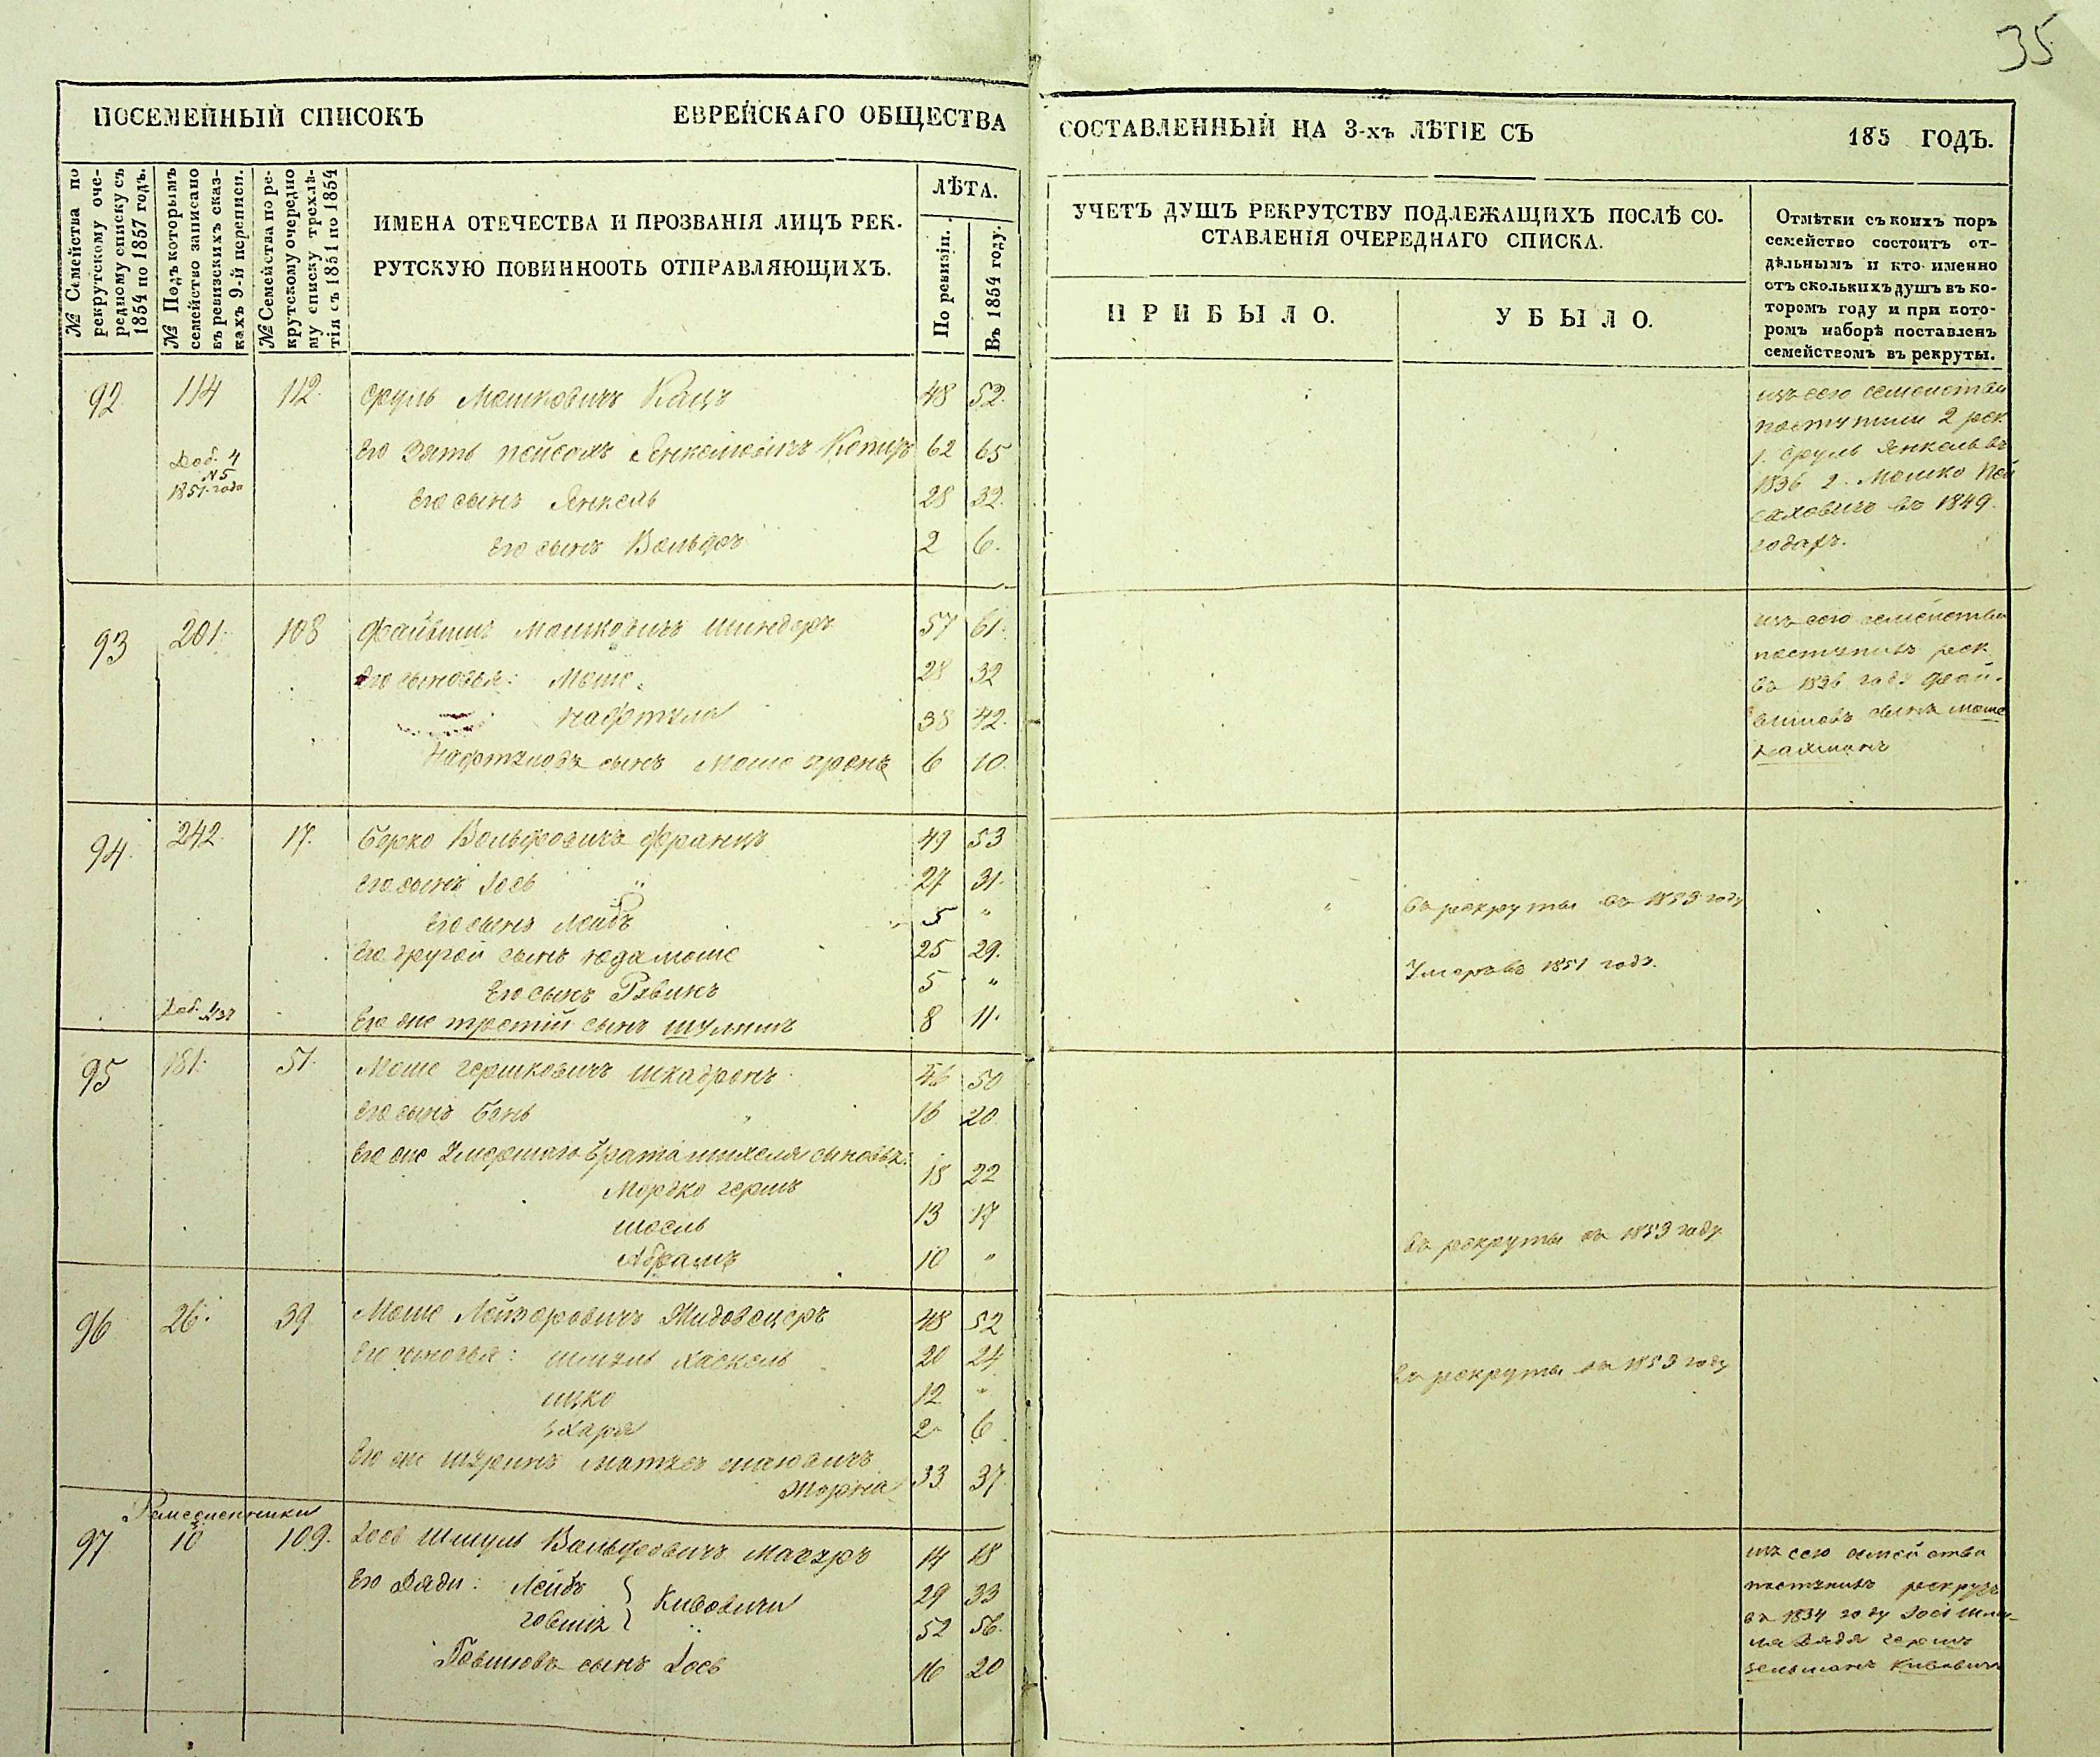 35
ПОСЕМЕЙНЫЙ СПИСОКЪ ЕВРЕЙСКАГО ОБЩЕСТВА
СОСТАВЛЕННЫЙ НА 3-хъ ЛѢТІЕ СЪ 185 ГОДЪ.
№ Семейства по
рекрутскому оче-
редному списку съ
1854 по 1857 годъ.
№ Подъ которымъ
семейство записано
въ ревизскихъ сказ-
кахъ 9-й переписи.
№ Семейства по ре-
крутскому очередно
му списку трехлѣ-
тія съ 1851 по 1854
ИМЕНА ОТЕЧЕСТВА И ПРОЗВАНІЯ ЛИЦЪ РЕК-
РУТСКУЮ ПОВИННООТЬ ОТПРАВЛЯЮЩИХЪ.
ЛѢТА.
По ревизіи.
Въ 1854 году.
УЧЕТЪ ДУШЪ РЕКРУТСТВУ ПОДЛЕЖАЩИХЪ ПОСЛѢ СО-
СТАВЛЕНІЯ ОЧЕРЕДНАГО СПИСКА.
ПРИБЫЛО.
УБЫЛО.
Отмѣтки съ коихъ поръ
семейство состоитъ от-
дѣльнымъ и кто именно
отъ сколькихъ душъ въ ко-
торомъ году и при кото-
ромъ наборѣ поставленъ
семействомъ въ рекруты.
92 114 112 Сруль Мошковичъ Кацъ 48 52
Доб. 4
№5
1851 года
Его зять Пейсахъ Янкелевичъ 62 65
Его сынъ Янкель 28 32
Его сынъ Вольфъ 2 6
изъ сего семейства
поступили 2 рек
1. Сруль Янкель въ
1836 2. Мошко Пей
саховичъ въ 1849
годахъ.
93 201 108 Файвишъ Мошковичъ Шиндеръ 57 61
Его сыновья: Моше 28 32
Нафтула 38 42
Нафтуловъ сынъ Моше Аронъ 6 10
изъ сего семейства
поступилъ рек
въ 1836 году Фай-
вишовъ сынъ Моше
Нахманъ
94 242 17 Берко Вольфовичъ Францъ 49 53
Его сынъ Іось 27 31
Его сынъ Лейбъ 5 "
въ рекруты въ 1853 году
Его другой сынъ Юда Моше 25 29
Его сынъ Рувинъ 5 "
Умеръ въ 1851 году.
Его же третій сынъ Шулимъ 8 11
95 181 51 Моше Гершковичъ Шкадронъ 46 50
Его сынъ Бень 16 20
Его же умершаго брата Михеля сыновья:
Мордко Гершъ 18 22
Шоель 13 17
Абрамъ 10 "
въ рекруты въ 1853 году
96 26 39 Моше Лейзеровичъ Жидовецеръ 48 52
Его сыновья: Шмуль Хаскель 20 24
Ицко 12 "
въ рекруты въ 1853 году
Захаря 2 6
Его же шуринъ 33 37
Ремесленники
97 10 109 Іось Шмуль Вольфовичъ Магузъ 14 18
Его дяди: Лейбъ } Кивовичи 29 33
Говшія 52 56
Говшіовъ сынъ Іось 16 20
изъ сего семейства
поступилъ рекрутъ
въ 1834 году Іося Шму-
ля дядя Гершъ
Зельманъ Кивовичъ